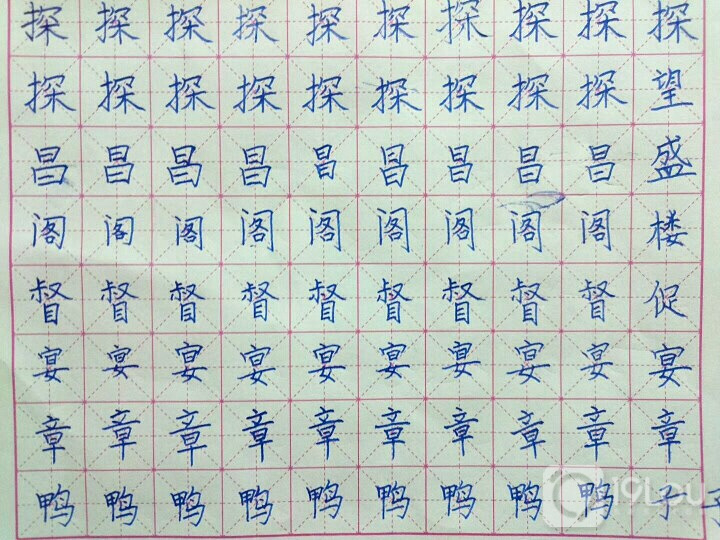 探探探探探探探探探探
探探探探探探探探探望
昌昌昌昌昌昌昌昌昌盛
阁阁阁阁阁阁阁阁阁楼
督督督督督督督督督促
宴宴宴宴宴宴宴宴宴宴
章章章章章章章章章章
鸭鸭鸭鸭鸭鸭鸭鸭鸭子子
19Lou